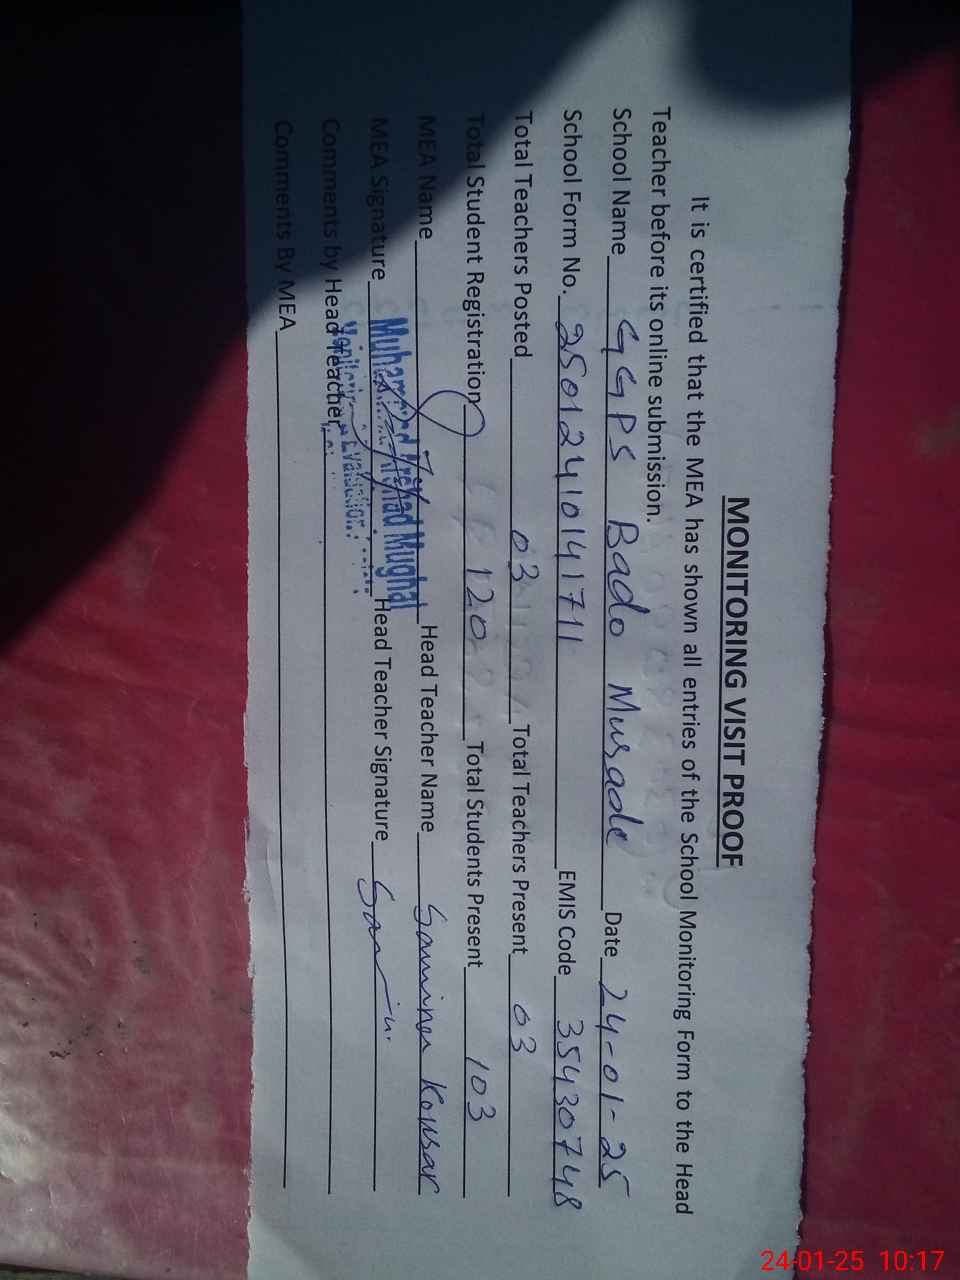 MONITORING VISIT PROOF
It is certified that the MEA has shown all entries of the School Monitoring Form to the Head
Teacher before its online submission.
School Name GGPS Bado Musade Date 24-01-25
School Form No. 25012410141711 EMIS Code 35430748
Total Teachers Posted 03 Total Teachers Present 03
Total Student Registration 120 Total Students Present 103
MEA Name Muhammad Arshad Mughal Head Teacher Name Saminen Kousar
MEA Signature Head Teacher Signature
Monitoring & Evaluation
Comments by Head Teacher
Comments By MEA
24-01-25 10:17